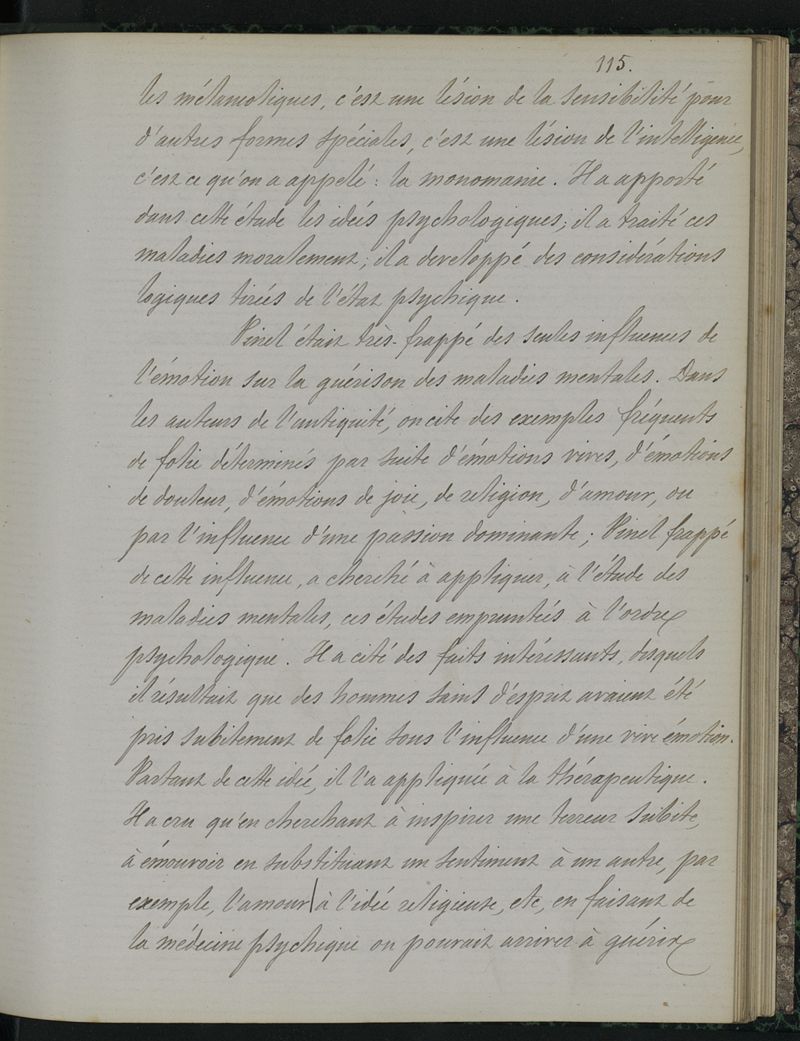 115.
les mélancoliques, c'est une lésion de la sensibilité pour
d'autres formes spéciales, c'est une lésion de l'intelligence,
c'est ce qu'on a appelé : la monomanie. Il a apporté
dans cette étude les idées psychologiques; il a traité ces
maladies moralement; il a developpé des considérations
logiques tirées de l'état psychique.
Pinel était très-frappé des seules influences de
l'émotion sur la guérison des maladies mentales. Dans
les auteurs de l'antiquité, on cite des exemples fréquents
de folie déterminés par suite d'émotions vives, d'émotions
de douleur, d'émotions de joie, de religion, d'amour, ou
par l'influence d'une passion dominante; Pinel frappé
de cette influence, a cherché à appliquer, à l'étude des
maladies mentales, ces études empruntées à l'ordre
psychologique. Il a cité des faits intéressants, desquels
il résultait que des hommes saints d'esprit avaient été
pris subitement de folie sous l'influence d'une vive émotion.
Partant de cette idée, il l'a appliquée à la thérapeutique.
Il a cru qu'en cherchant à inspirer une terreur subite,
à émouvoir en substituant un sentiment à un autre, par
exemple, l'amour à l'idée religieuse, etc, en faisant de
la médecine psychique on pouvait arriver à guérir